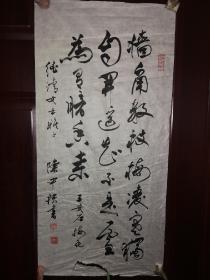 墙角数枝梅凌寒独
自开遥知不是雪
為有暗香来 王安石梅花
女士雅正 书